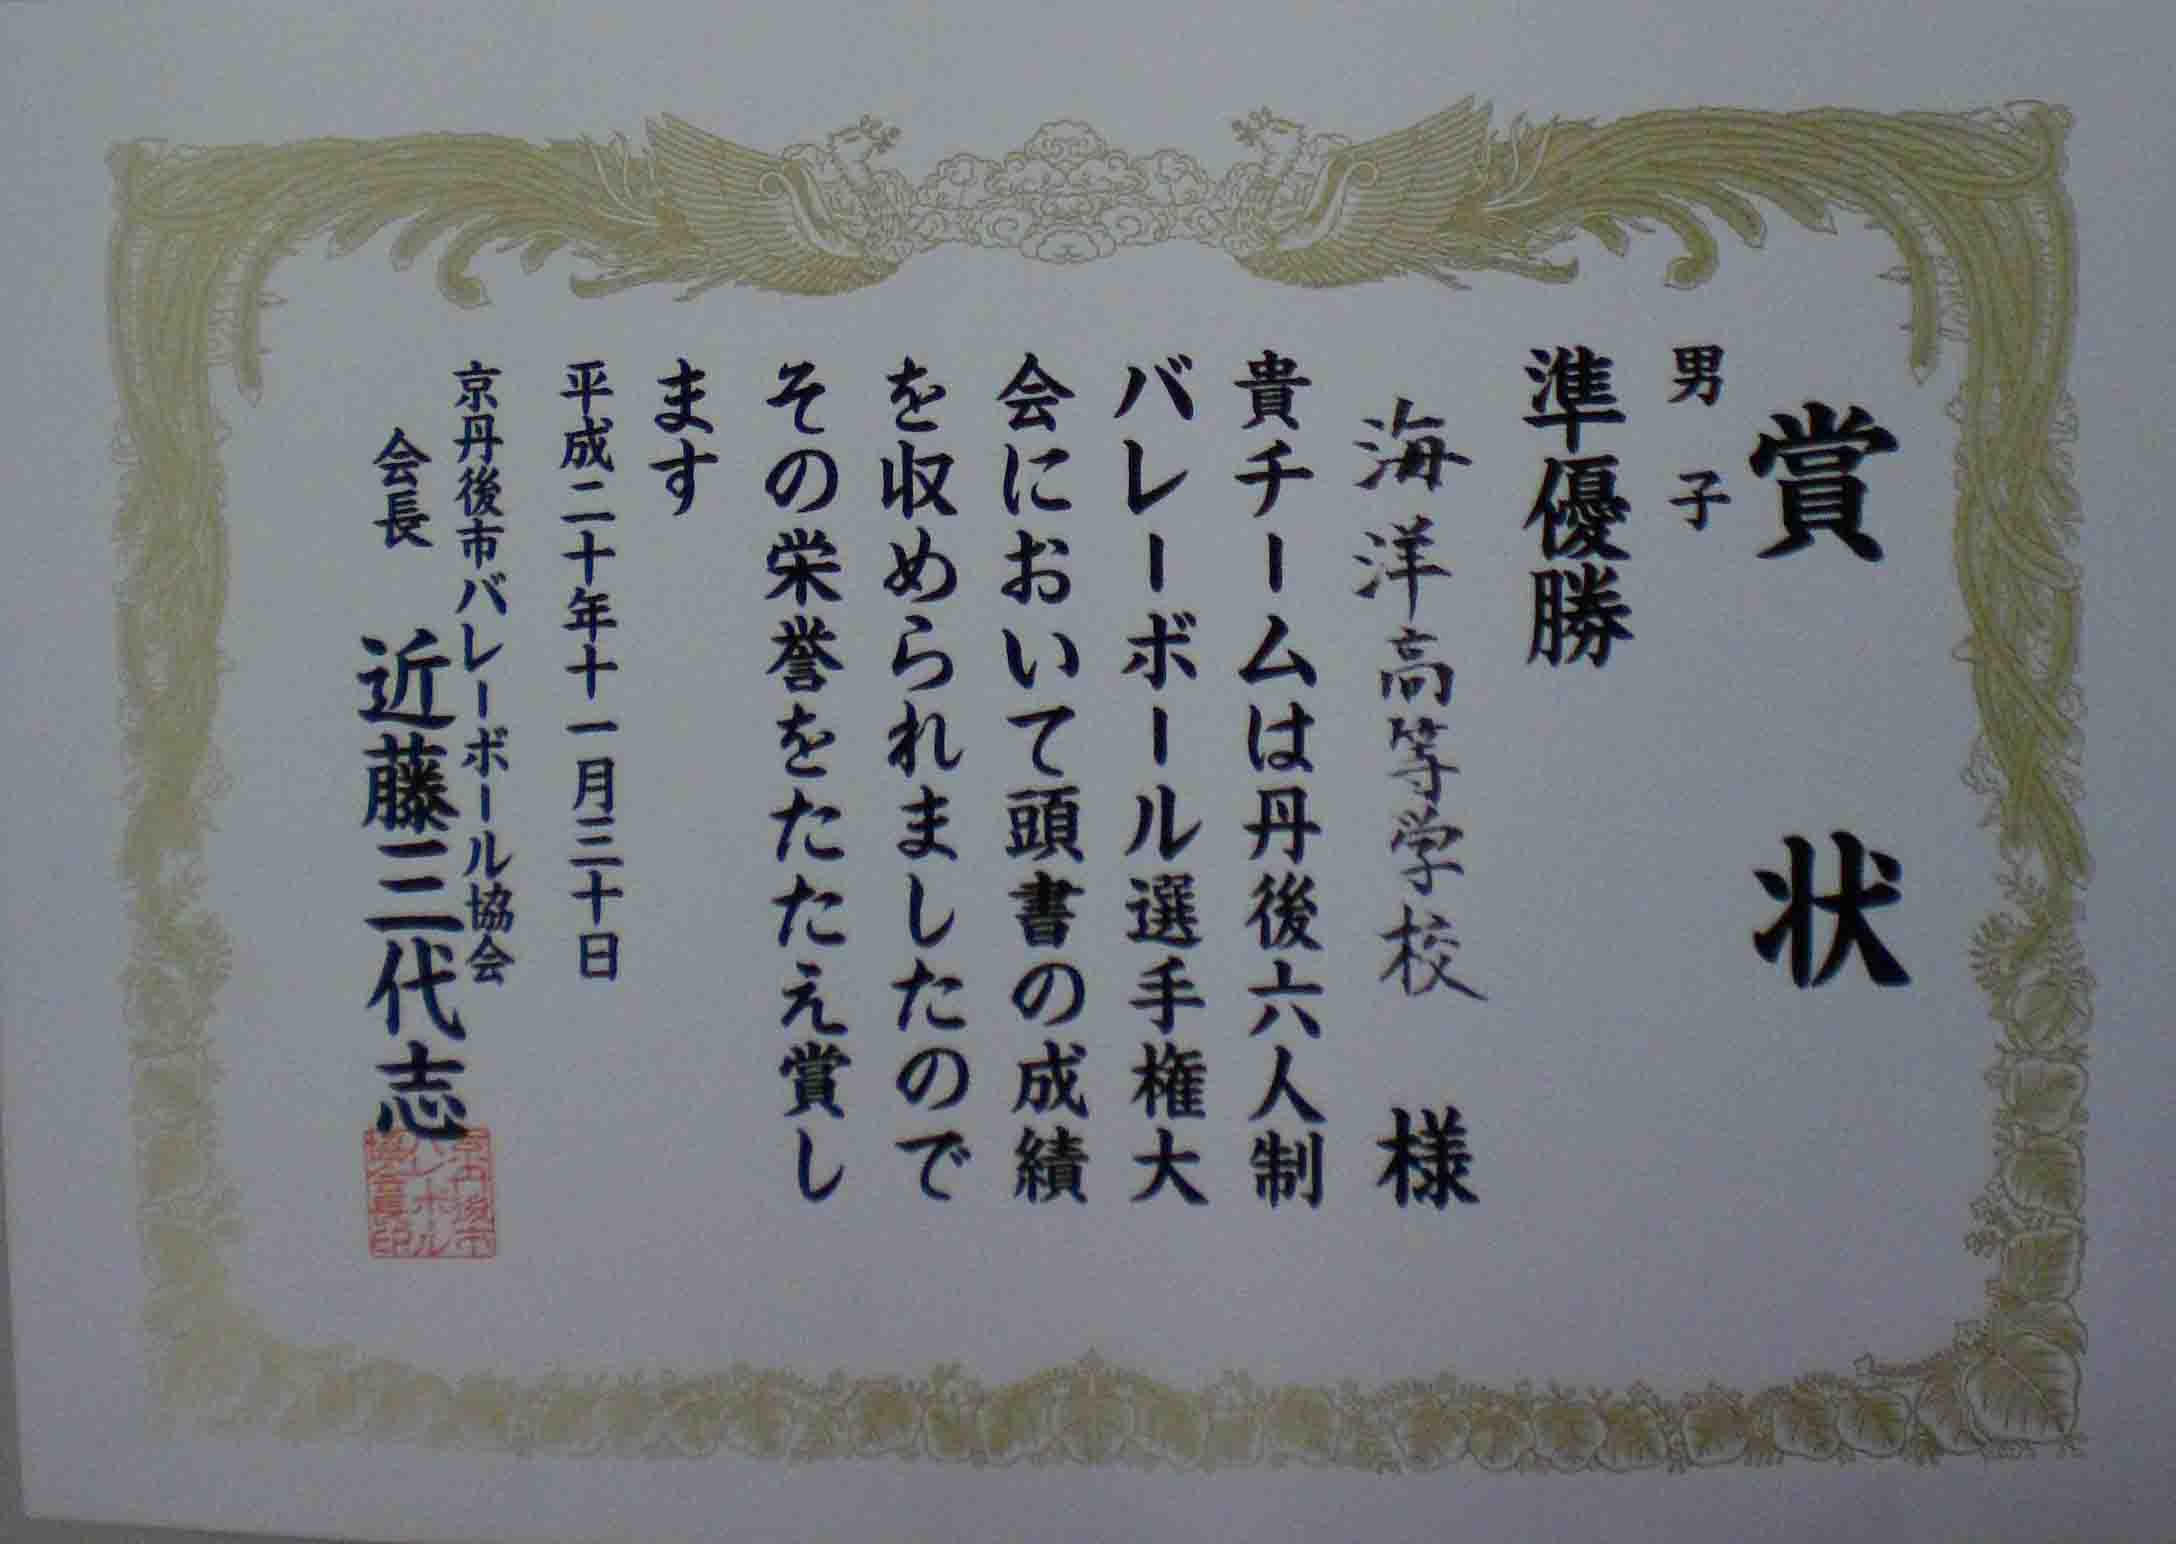 賞状
男子
準優勝
海洋高等学校 様
貴チームは丹後六人制
バレーボール選手権大
会において頭書の成績
を収められましたので
その栄誉をたたえ賞し
ます
平成二十年十一月三十日
京丹後市バレーボール協会
会長 近藤三代志
京丹後市
バレーボール
協会長印